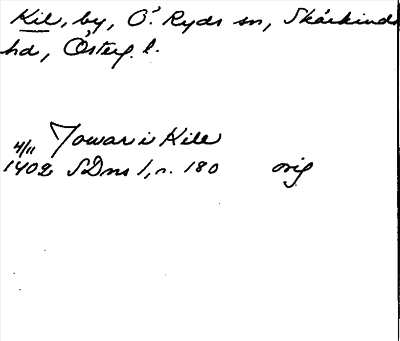 Kil, by, Ö. Ryds sn, Skärkinds
hd, Österg. l.
Jowar i Kile
4/11
1402 SDns 1, n. 180 orig